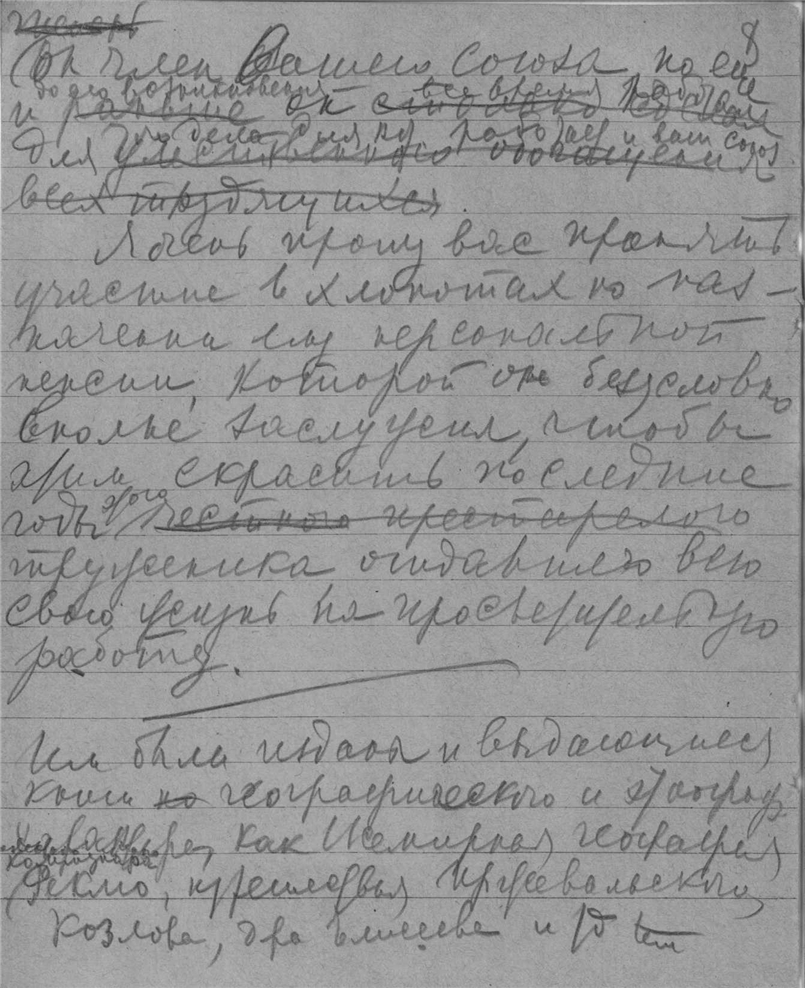 теперь
8
Он член Вашего союза но еще
до его возникновения все время работал
и раньше он
для того дела для кот работает и ваш союз
умственного обогащения
всех трудящихся.
Я очень прошу вас принять
участие в хлопотах по наз-
начении ему персональной
пенсии, которой он безусловно
вполне заслужил, чтобы
этим скрасить последние
годы этого честного престарелого
труженика отдавшего всю
свою жизнь на просветительную
работу.
Им были изданы и выдающиеся
книги по географического и этнограф.
характера, как Всемирная география
Реклю, путешествия Пржевальского,
Козлова, д-ра Елисеева и др